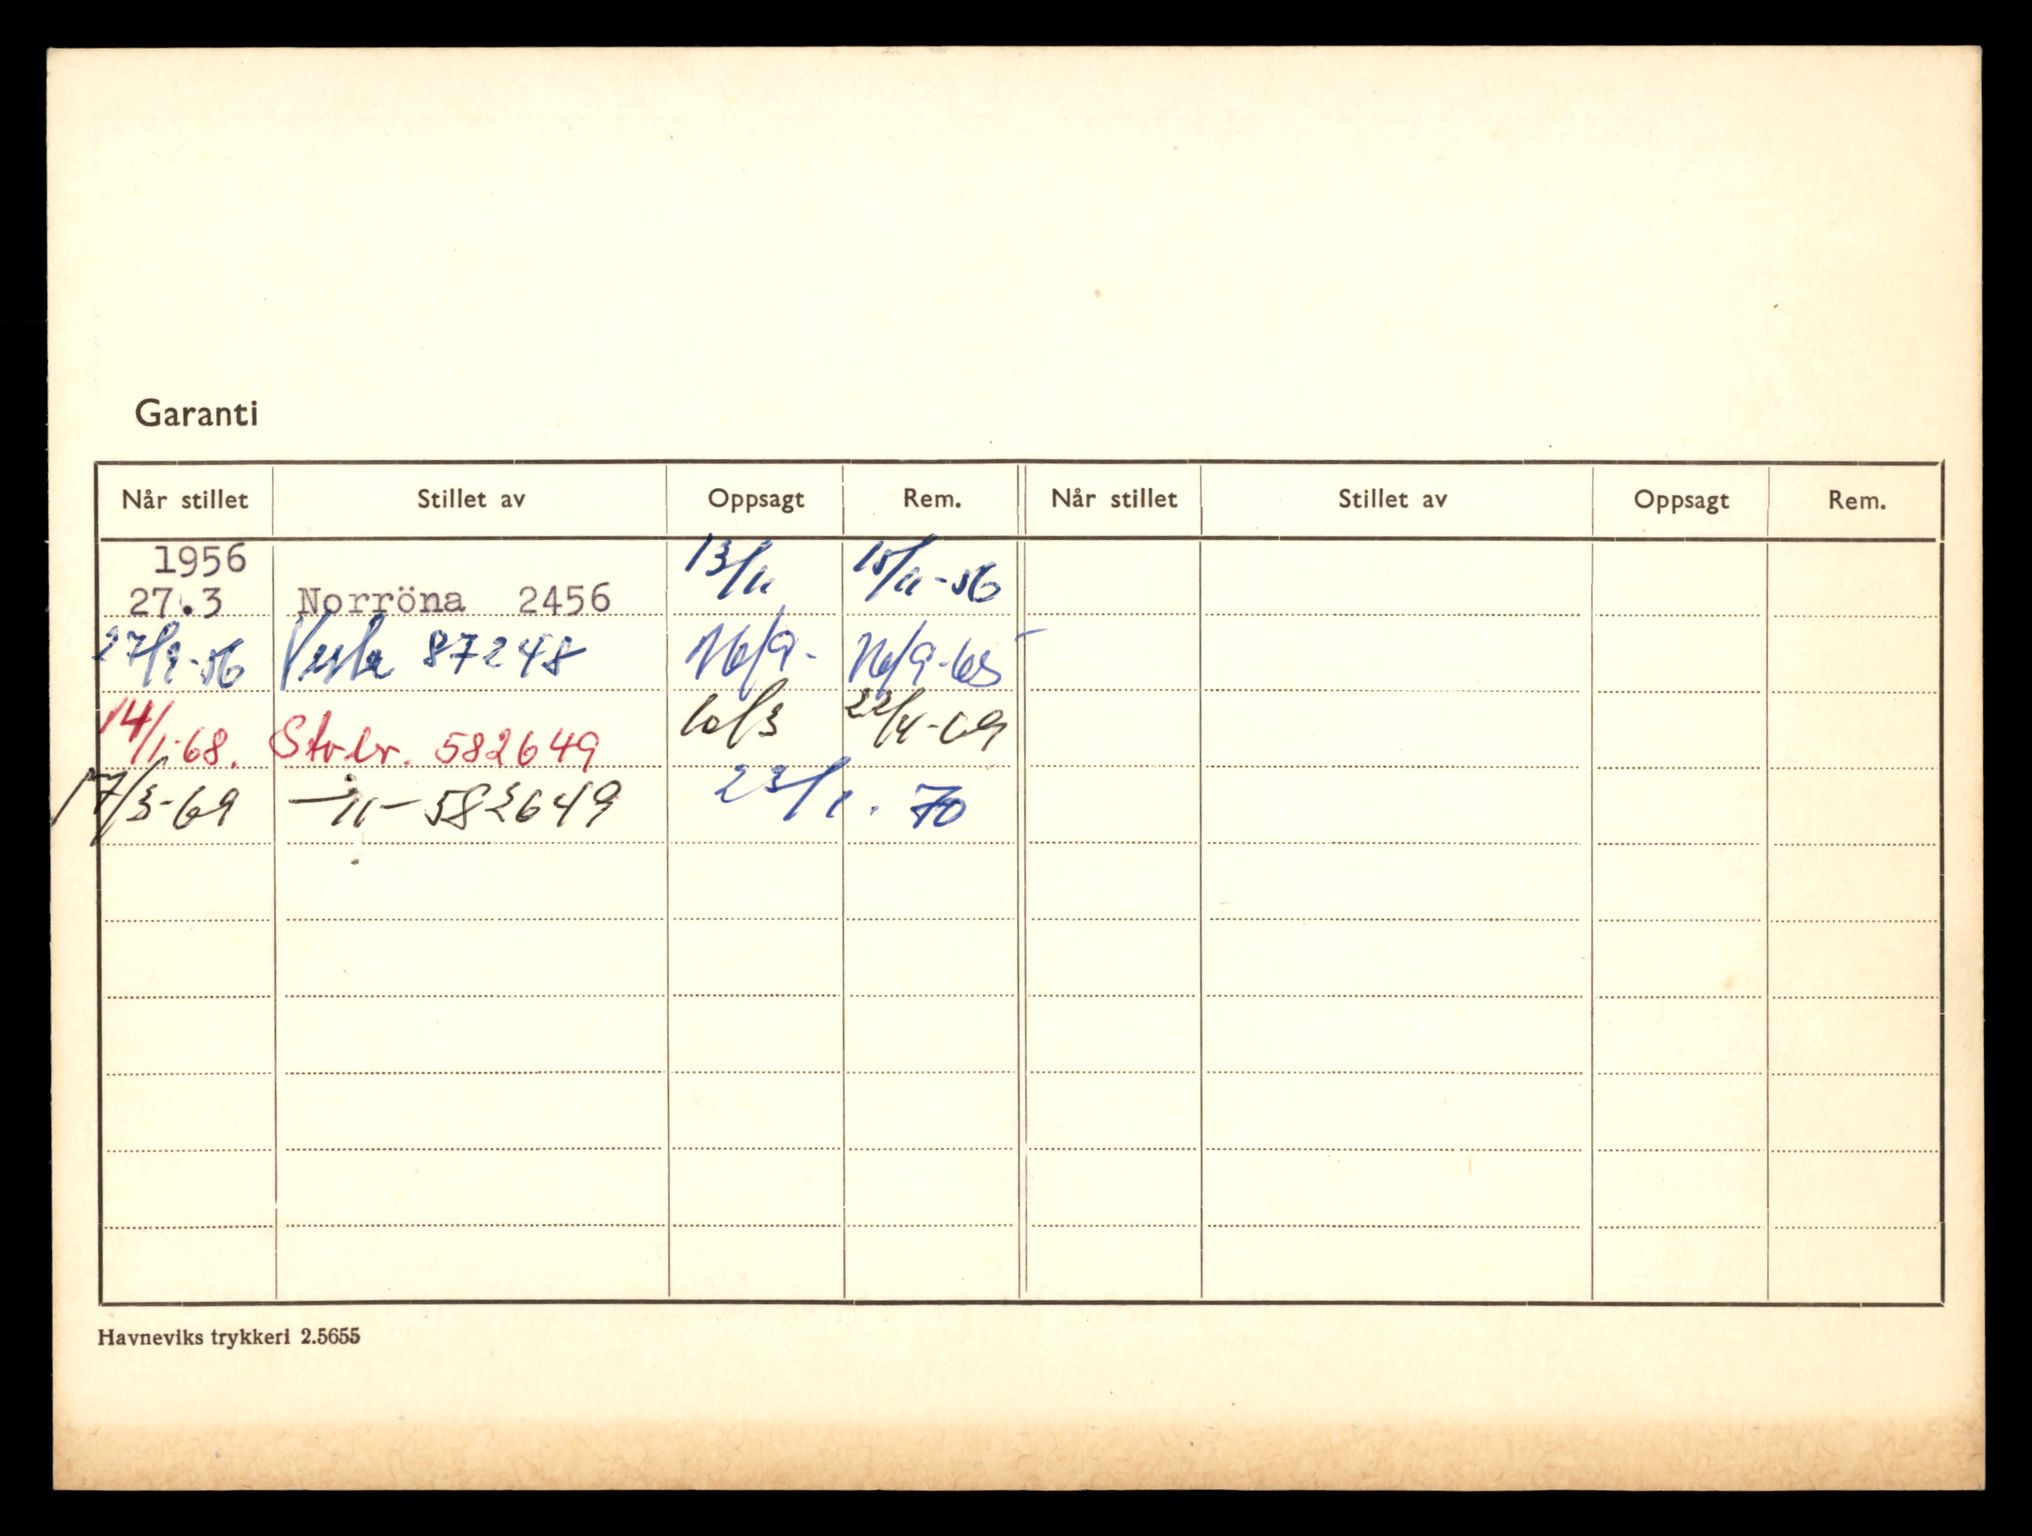 Garanti
Når stillet Stillet av Oppsagt Rem. Når stillet Stillet av Oppsagt Rem.
1956 13/11 15/11-56
27.3 Norröna 2456
27/9-56 Vesta 87248 16/9- 16/9-65
14/1-68. Storbr. 582649 10/3 22/4-69
17/3-69 —"— 582649 23/1. 70
Havneviks trykkeri 2.5655